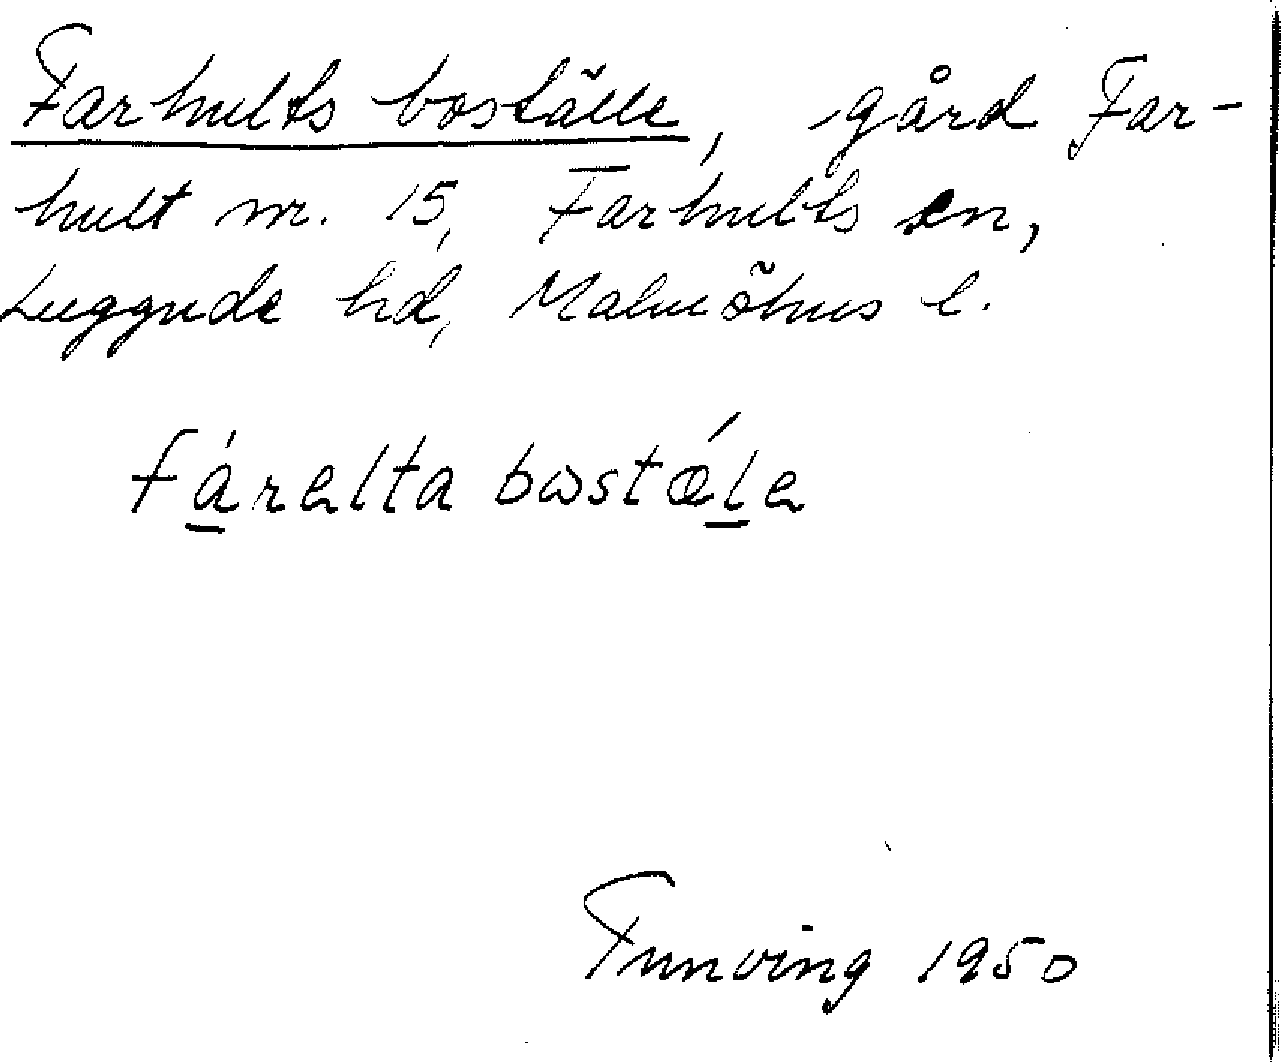 Farhults boställe, gård Far-
hult nr. 15, Farhults sn,
Luggude hd, Malmöhus l.
fárelta bostǽle
1950